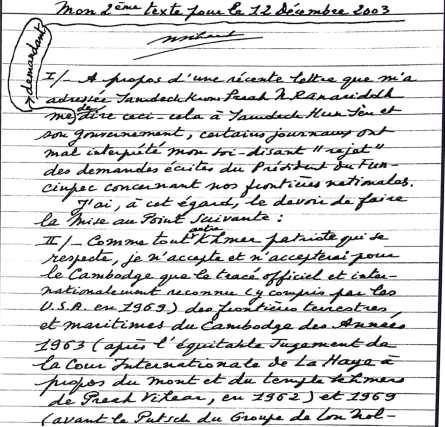 Mon 2ème texte pour le 12 Décembre 2003
demandant
I/- A propos d'une récente lettre que m'a
adressée Samdech Krom Preah N. Ranariddh
me de dire ceci-cela à Samdech Hun Sen et
son gouvernement, certains journaux ont
mal interprété mon soi-disant "rejet"
des demandes écrites du Président du Fun-
cinpec concernant nos frontières nationales.
J'ai, à cet égard, le devoir de faire
la Mise au Point suivante :
II/- Comme tout autre Khmer patriote qui se
respecte, je n'accepte et n'accepterai pour
le Cambodge que le tracé officiel et inter-
nationalement reconnu (y compris par les
U.S.A. en 1969) des frontières terrestres
et maritimes du Cambodge des Années
1963 (après l'équitable Jugement de
la Cour Internationale de La Haye à
propos du mont et du temple khmers
de Preah Vihear, en 1962) et 1969
(avant le Putsch du Groupe de Lon Nol-